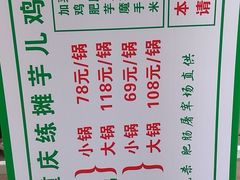 庆练摊芋儿鸡
小锅 78元/锅
大锅 118元/锅
小锅 69元/锅
大锅 108元/锅
肥肠屠宰场直供
加
鸡
肥
芋
魔
手
米
本
请